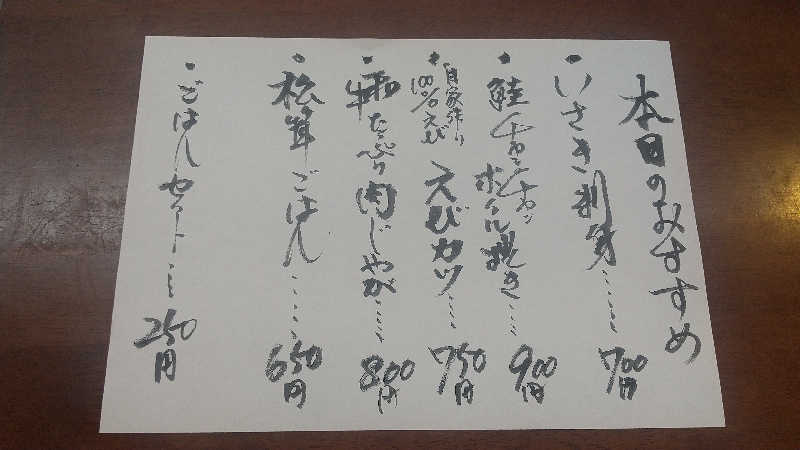 本日のおすすめ
・いさき刺身……700円
・鮭チャンチャンホイル焼き……900円
・自家作り100%えび えびカツ……750円
・牛肉たっぷり肉じゃが……800円
・松茸ごはん……650円
・ごはんセット…250円